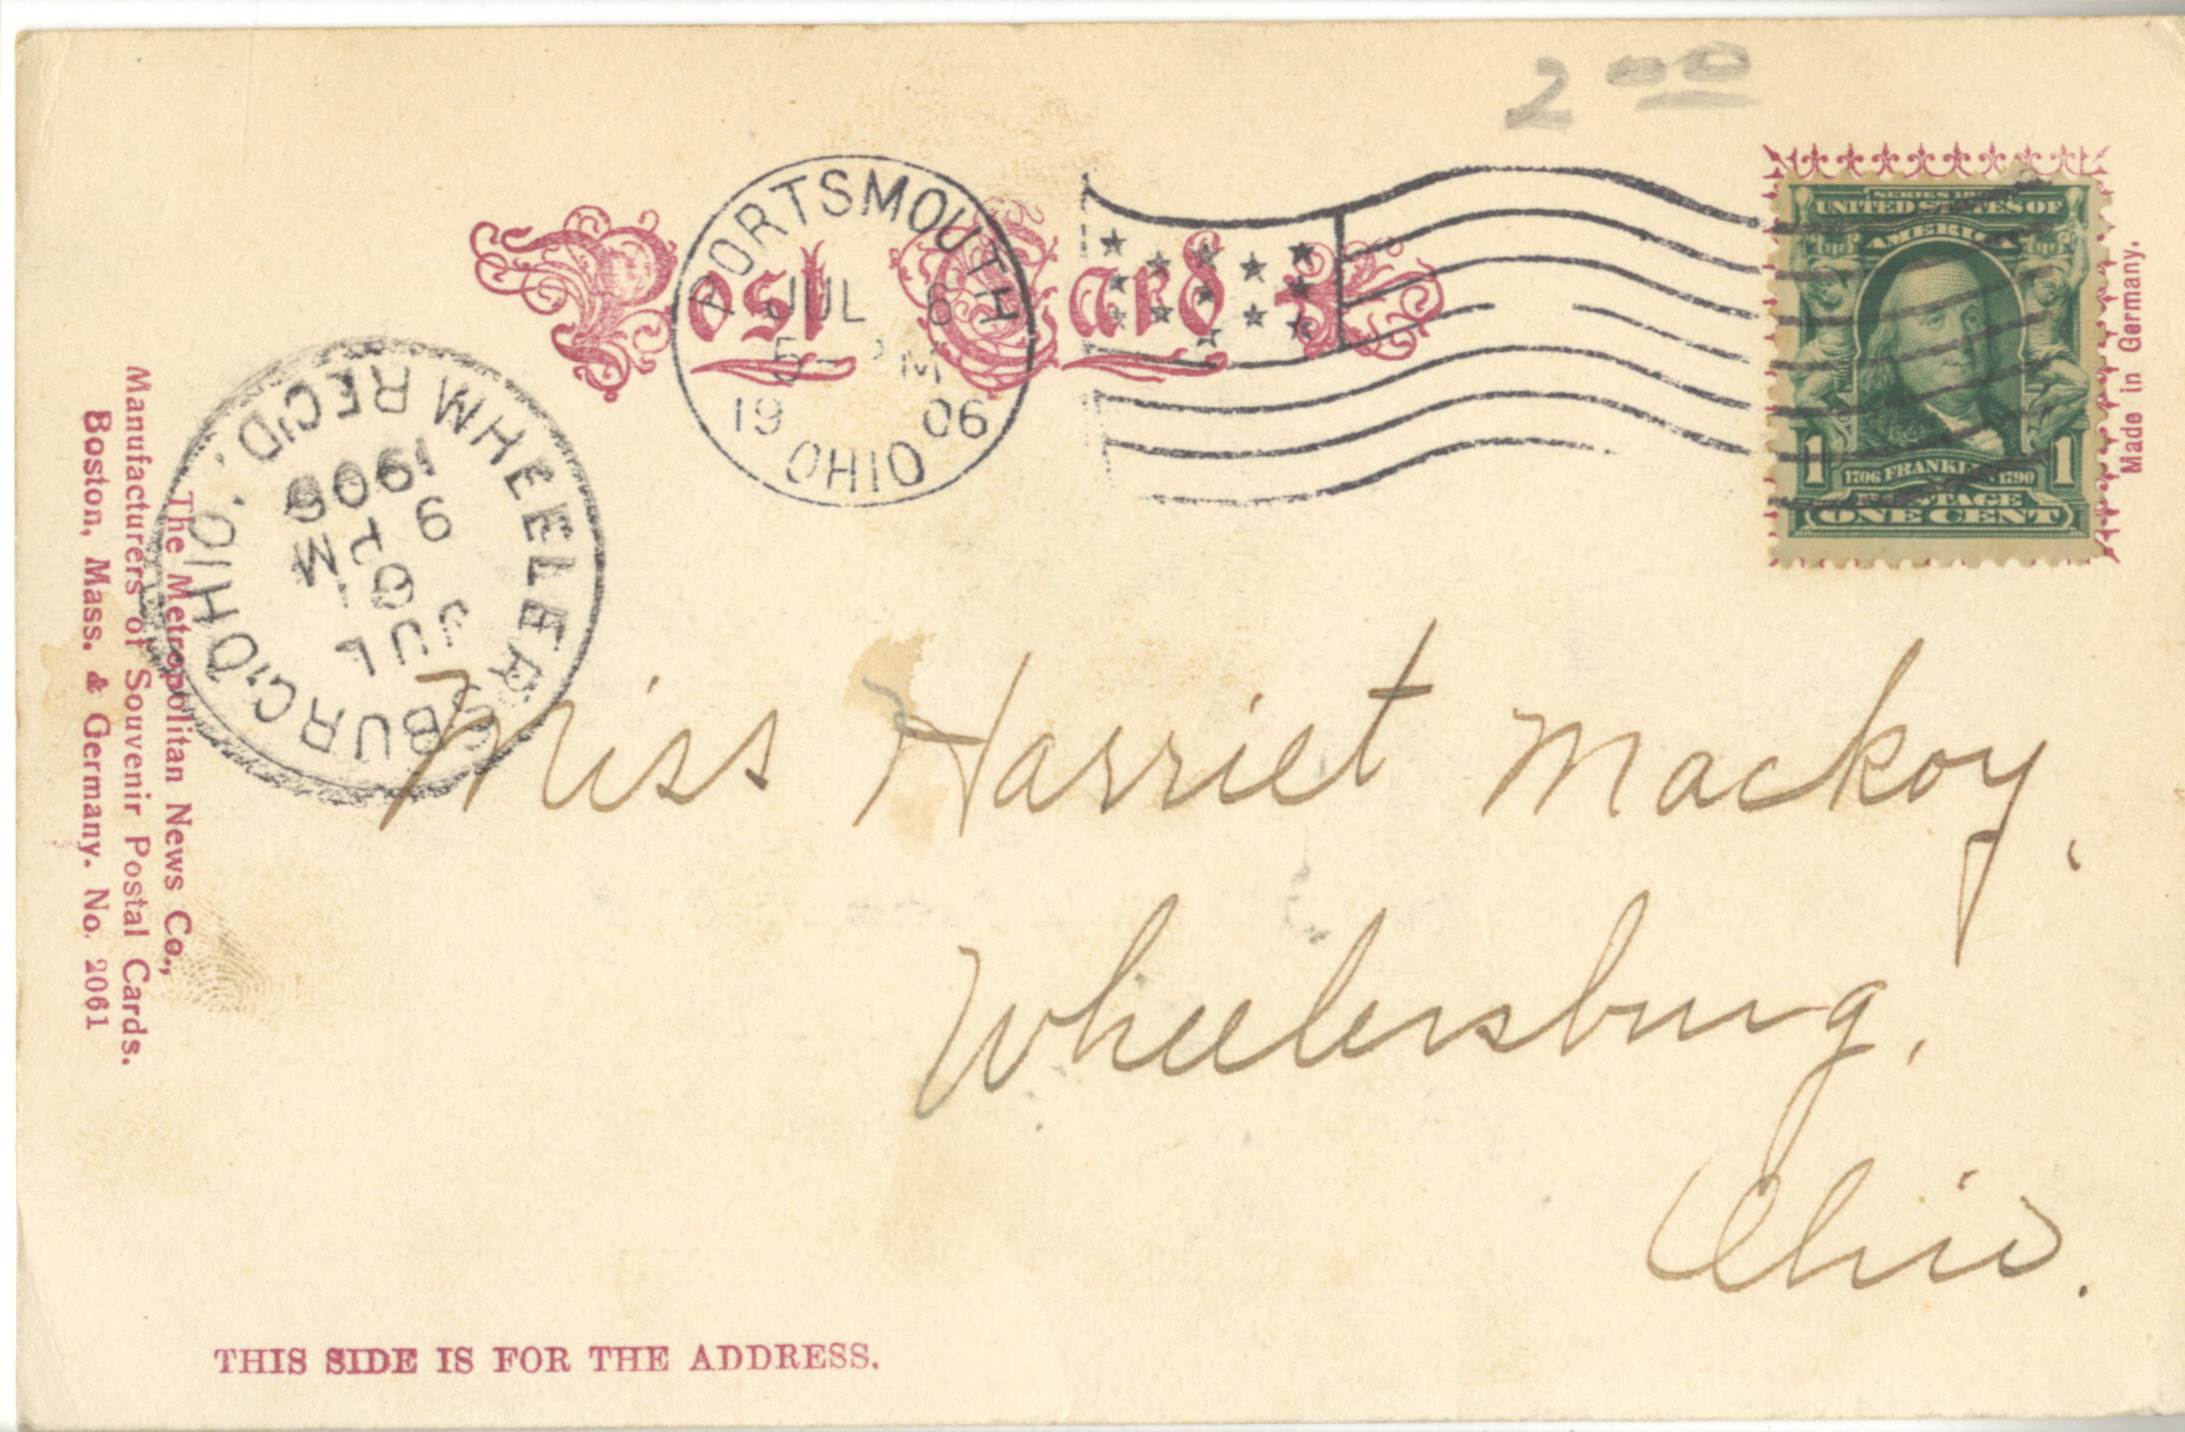 2 00
Post Card
PORTSMOUTH
JUL 6
5- PM
1906
OHIO
SERIES 1902
UNITED STATES OF
AMERICA
1 1
1706 FRANKLIN 1790
POSTAGE
ONE CENT
Made in Germany.
WHEELERSBURG, OHIO.
REC'D.
JUL
6
1906
The Metropolitan News Co.,
Manufacturers of Souvenir Postal Cards.
Boston, Mass. & Germany. No. 2061
Miss Harriet Mackoy,
Wheelersburg,
Ohio.
THIS SIDE IS FOR THE ADDRESS.